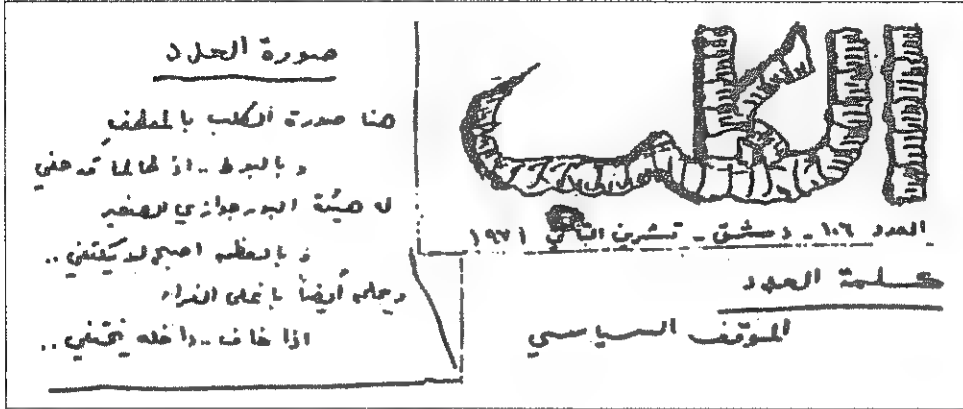 الكلب
العدد ١٠٦ - دمشق - تشرين الثاني ١٩٧١
كلمة العدد
الموقف السياسي
صورة العدد
هنا صورة الكلب بالمعطف
و بالبوط .. اذ طالما
له هيئة البورجوازي الصغير
و بالعظم اصبح لا يكتفي ..
أيضاً باغلى الفراء
اذا خاف .. داخله يختفي ..